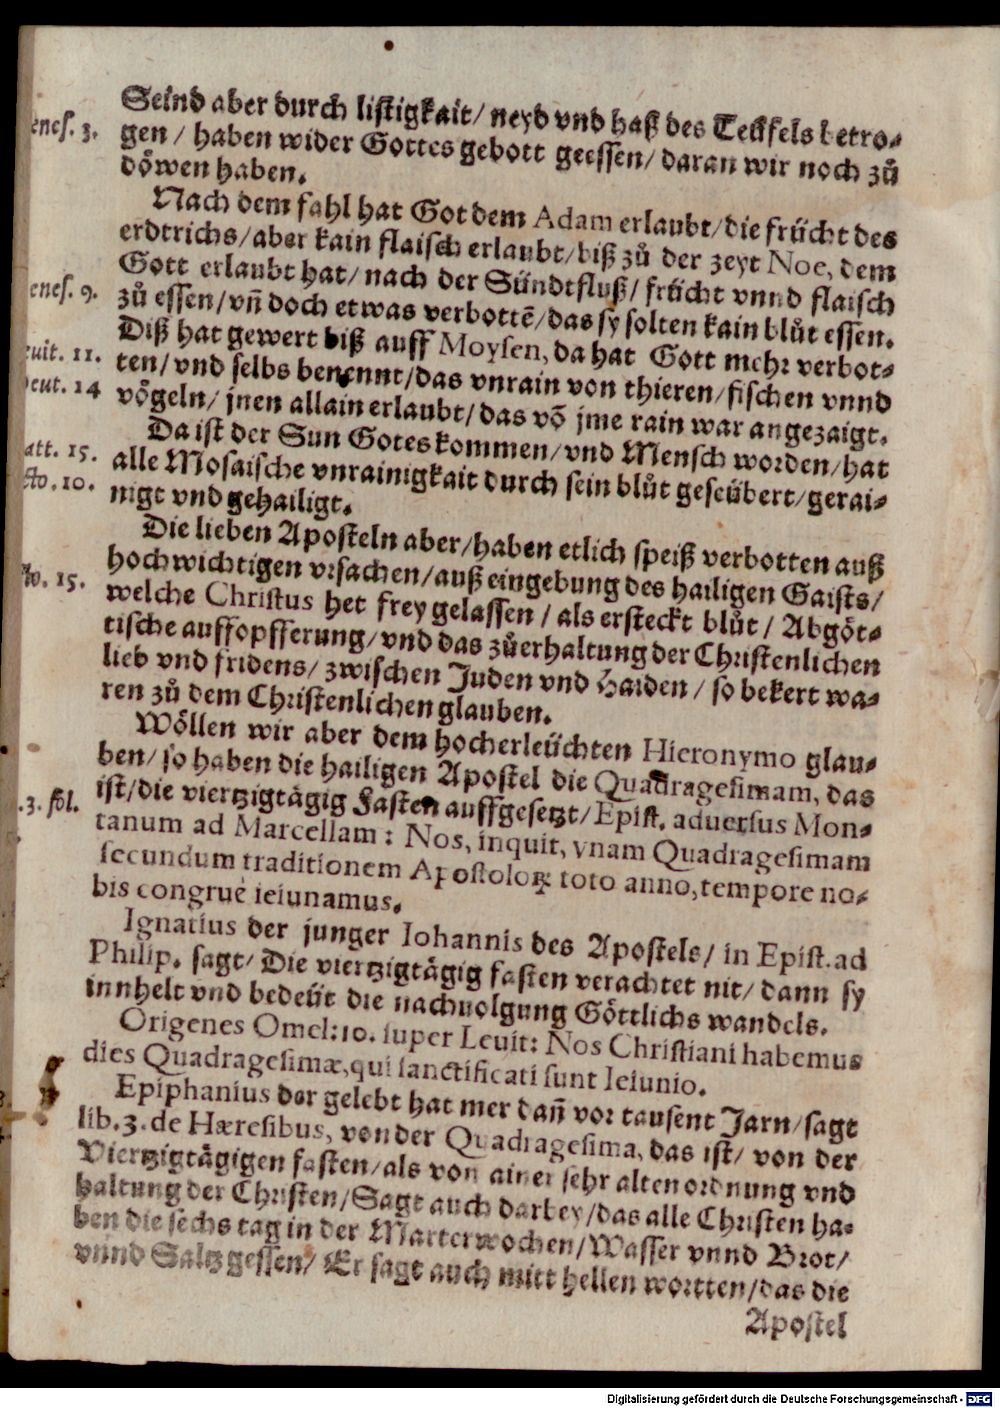 Seind aber durch listigkait/ neyd vnd haß des Teüfels betro-
enes. 3. gen / haben wider Gottes gebott geessen/ daran wir noch zů
döwen haben.
Nach dem fahl hat Got dem Adam erlaubt/ die frücht des
erdtrichs/ aber kain flaisch erlaubt/ biß zů der zeyt Noe, dem
Gott erlaubt hat/ nach der Sündtfluß/ frücht vnnd flaisch
enes. 9. zů essen/ vñ doch etwas verbottẽ/ das sy solten kain blůt essen.
Diß hat gewert biß auff Moysen, da hat Gott mehr verbot-
euit. 11. ten/ vnd selbs benennt/ das vnrain von thieren/ fischen vnnd
Deut. 14 vögeln/ jnen allain erlaubt/ das võ jme rain war angezaigt.
Da ist der Sun Gotes kommen/ vnd Mensch worden/ hat
att. 15. alle Mosaische vnrainigkait durch sein blůt geseübert/ gerai-
cto. 10. nigt vnd gehailigt.
Die lieben Aposteln aber/ haben etlich speiß verbotten auß
hochwichtigen vrsachen/ auß eingebung des hailigen Gaists/
cto. 15. welche Christus het frey gelassen / als ersteckt blůt / Abgöt-
tische auffopfferung/ vnd das zůerhaltung der Christenlichen
lieb vnd fridens/ zwischen Juden vnd Haiden / so bekert wa-
ren zů dem Christenlichen glauben.
Wöllen wir aber dem hocherleüchten Hieronymo glau-
ben/ so haben die hailigen Apostel die Quadragesimam, das
.3. fol. ist/ die viertzigtägig Fasten auffgesetzt/ Epist. aduersus Mon-
tanum ad Marcellam : Nos, inquit, vnam Quadragesimam
secundum traditionem Apostoloꝝ toto anno, tempore no-
bis congruè ieiunamus.
Ignatius der junger Iohannis des Apostels/ in Epist. ad
Philip. sagt/ Die viertzigtägig fasten verachtet nit/ dann sy
innhelt vnd bedeüt die nachuolgung Göttlichs wandels.
Origenes Omel: 10. super Leuit: Nos Christiani habemus
dies Quadragesimæ, qui sanctificati sunt Ieiunio.
Epiphanius der gelebt hat mer dañ vor tausent Jarn/ sagt
lib. 3. de Hæresibus, von der Quadragesima, das ist/ von der
Viertzigtägigen fasten/ als von ainer sehr alten ordnung vnd
haltung der Christen/ Sagt auch darbey/ das alle Christen ha-
ben die sechs tag in der Marterwochen/ Wasser vnnd Brot/
vnnd Saltz gessen/ Er sagt auch mitt hellen wortten/ das die
Apostel
Digitalisierung gefördert durch die Deutsche Forschungsgemeinschaft - DFG